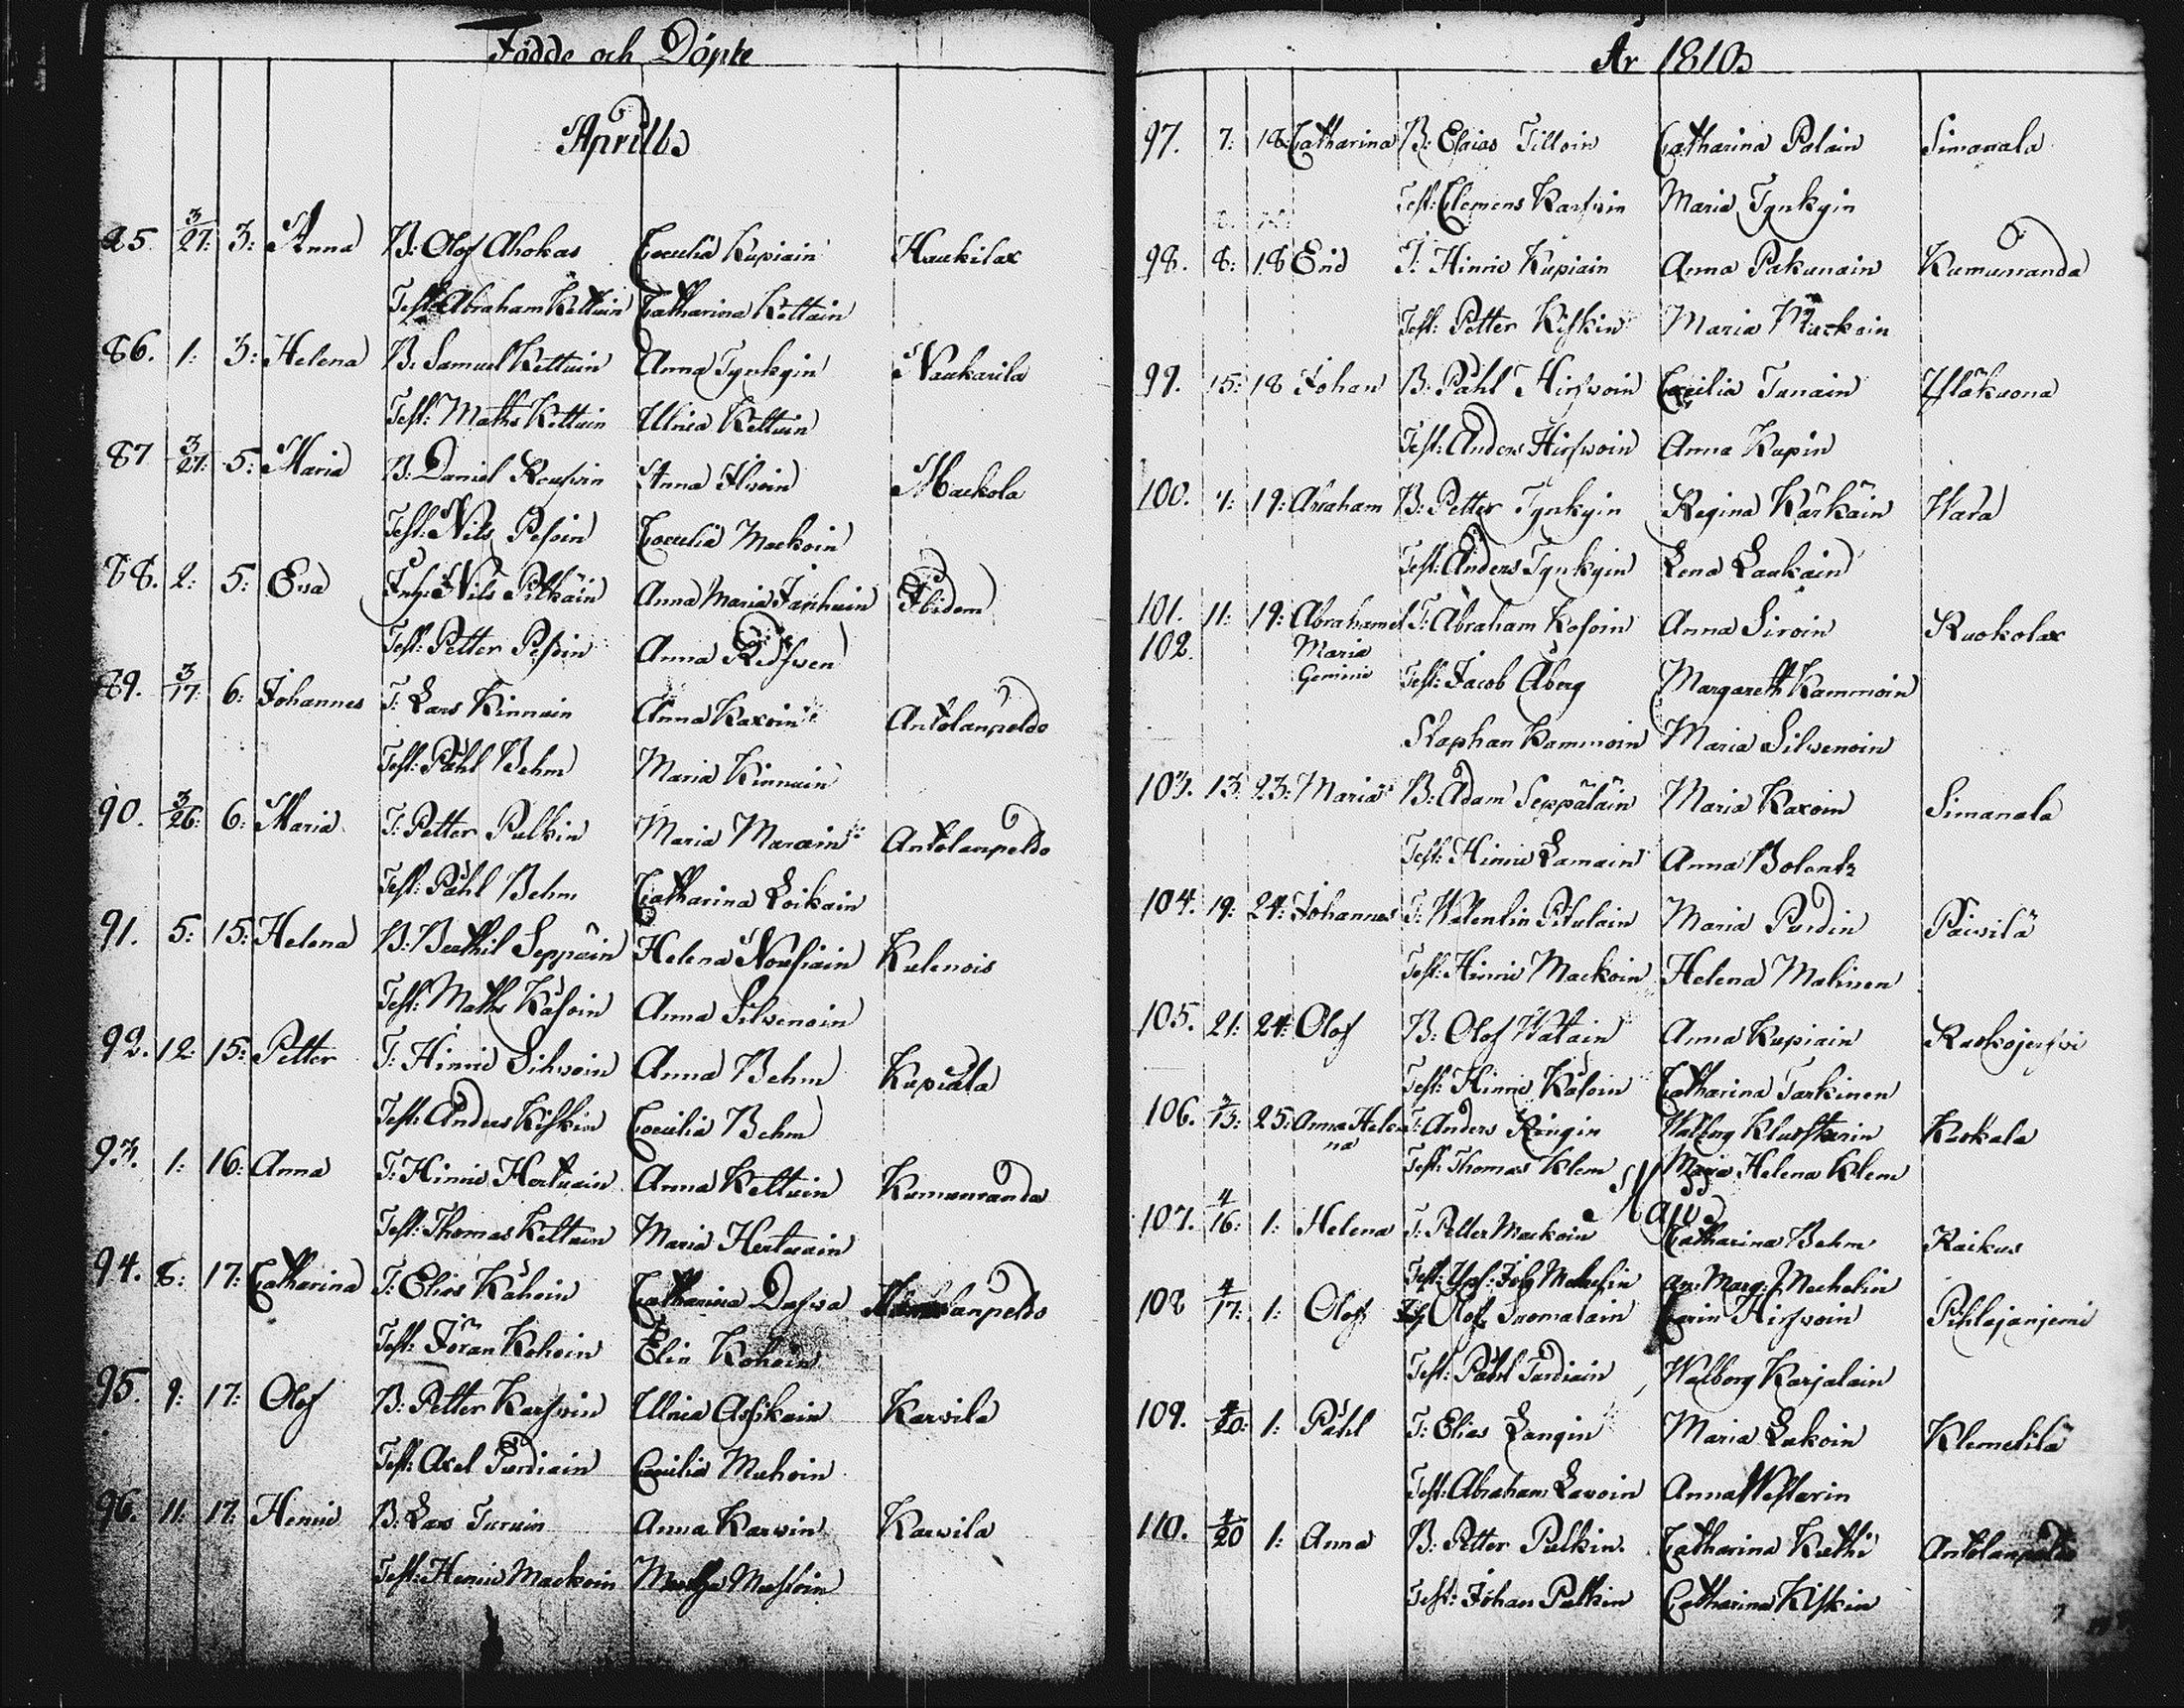 Födde och Döpte
Aprilis
85. 3/27: 3: Anna B: Olof Ahokas Coecilia Kupiain Haukilax
Test: Abraham Kettuin Catharina Kettuin
86. 1: 3: Helena B: Samuel Kettuin Anna Tynkyin Naukarila
Test: Maths Kettuin Ulrica Kettuin
87 3/27: 5: Maria B: Daniel Rouswin Anna Ilwoin Mackola
Test: Nils Pesoin Coecilia Mackoin
88. 2: 5: Eva Inh: Nils Pitkäin Anna Maria Janhuin Ibidem
Test: Petter Pesoin Anna
89. 3/17: 6: Johannes T: Lars Kinnuin Anna Kaxoin Anttolanpeldo
Test: Påhl Behm Maria Kinnuin
90. 3/26: 6: Maria T: Petter Pulkin Maria Marain Anttolanpeldo
Test: Påhl Behm Catharina Loikain
91. 5: 15: Helena B: Berthil Seppäin Helena Nousiain Kulenois
Test: Maths Käsoin Anna Silvenoin
92. 12: 15: Petter T: Hinric Sihvoin Anna Behm Kupiala
Test: Anders Kiskin Coecilia Behm
93. 1: 16: Anna T: Hinric Hertuain Anna Kettuin Kumuranda
Test: Thomas Kettuin Maria Hertuain
94. 8: 17: Catharina T: Elias Kähoin Catharina
Test: Jöran Kohoin Elin Kohoin
95. 9: 17: Olof B: Petter Karswin Ulrica Asikain Karvila
Test: Axel Purdiain Coecilia Muhoin
96. 11: 17: Henric B: Lars Turuin Anna Karvin Karvila
Test: Henric Mackoin Mustoin
År 1810
97. 7: 18: Catharina B: Esaias Tilloin Catharina Polain Simanala
Test: Clemens Karswin Maria Tynkyin
98. 8: 18 Eric T: Hinric Kupiain Anna Pakunain Kumuranda
Test: Petter Kiskin Maria Mackoin
99. 15: 18 Johan B: Påhl Hirswoin Coecilia Tunain
Test: Anders Hirswoin Anna Kupin
100. 4: 19: Abraham B: Petter Tynkyin Regina Kärkäin Wara
Test: Anders Tynkyin Lena Laukain
101. 11: 19: Abraham et T: Abraham Kosoin Anna Siroin Ruokolax
102. Maria
Gemini Test: Jacob Åberg Margareth Kammoin
Staphan Kammoin Maria Silvenoin
103. 13: 23: Maria B: Adam Seppäläin Maria Kaxoin Simanala
Test: Hinric Lamain Anna Bolentz
104. 19: 24: Johannes T: Walentin Pitulain Maria Purdin Päivilä
Test: Hinric Mackoin Helena Malinen
105. 21: 24: Olof B: Olof Watain Anna Kupiain Raskojerfwi
Test: Hinric Käsoin Catharina Tarkinen
106. 3/13: 25: Anna Hele- T: Anders Ringin Walborg Kluustarin Koskala
na Test: Thomas Klem Maria Helena Klem
Maij
107. 4/16: 1: Helena T: Petter Mackoin Catharina Behm Raikus
Test: Joh Mechelin An: Marg: Mechelin
108 4/17: 1: Olof Olof Suomalain Carin Hirswoin Pihlajanjemi
Test: Påhl Turdiain Walborg Karjalain
109. 4/20: 1: Påhl T: Elias Langin Maria Lukoin Klemetilä
Test: Abraham Lavoin Anna Westarin
110. 4/20 1: Anna B: Petter Pulkin Catharina Kuthi Anttolanpeldo
Test: Johan Pulkin Catharina Kiskin